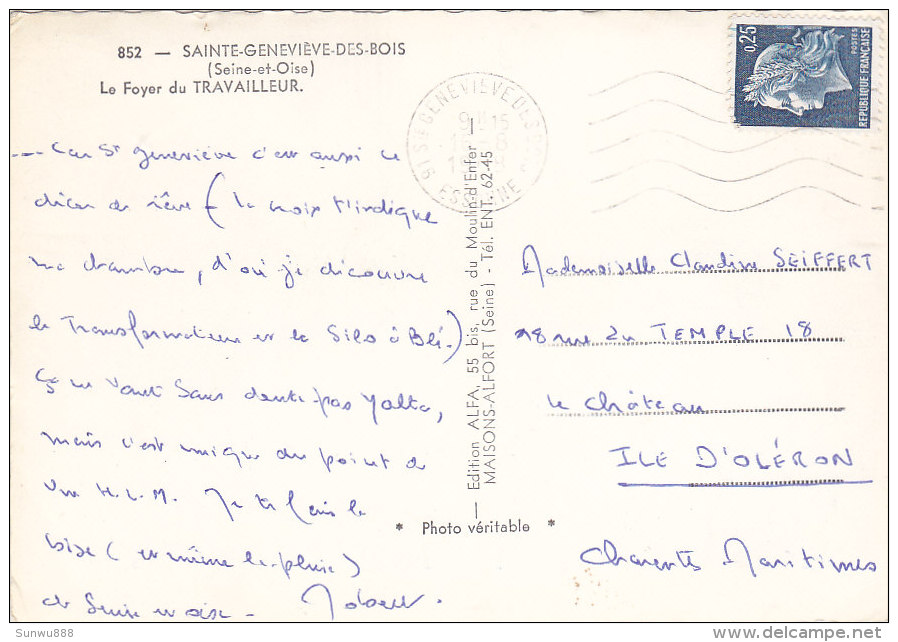 852 — SAINTE-GENEVIÈVE-DES-BOIS
(Seine-et-Oise)
Le Foyer du TRAVAILLEUR.
0,25
POSTES
REPUBLIQUE FRANÇAISE
91 STE GENEVIEVE DES BOIS
ESSONNE
--- Car Ste Geneviève c'est aussi ce
décor de rêve (la croix t'indique
ma chambre, d'où je découvre
le Transformateur et le Silo à Blé.)
Ça ne vaut sans doute pas Yalta,
mais c'est unique du point de
vue H.L.M. Je te fais la
bise (et même la pluie)
de Seine et oise - Robert.
Edition ALFA, 55 bis, rue du Moulin-d'Enfer
MAISONS-ALFORT (Seine) - Tél. ENT. 62-45
* Photo véritable *
Mademoiselle Claudine SEIFFERT
18 rue du TEMPLE 18
le château
ILE D'OLÉRON
Charente Maritimes
Sunwu888
www.delcampe.net